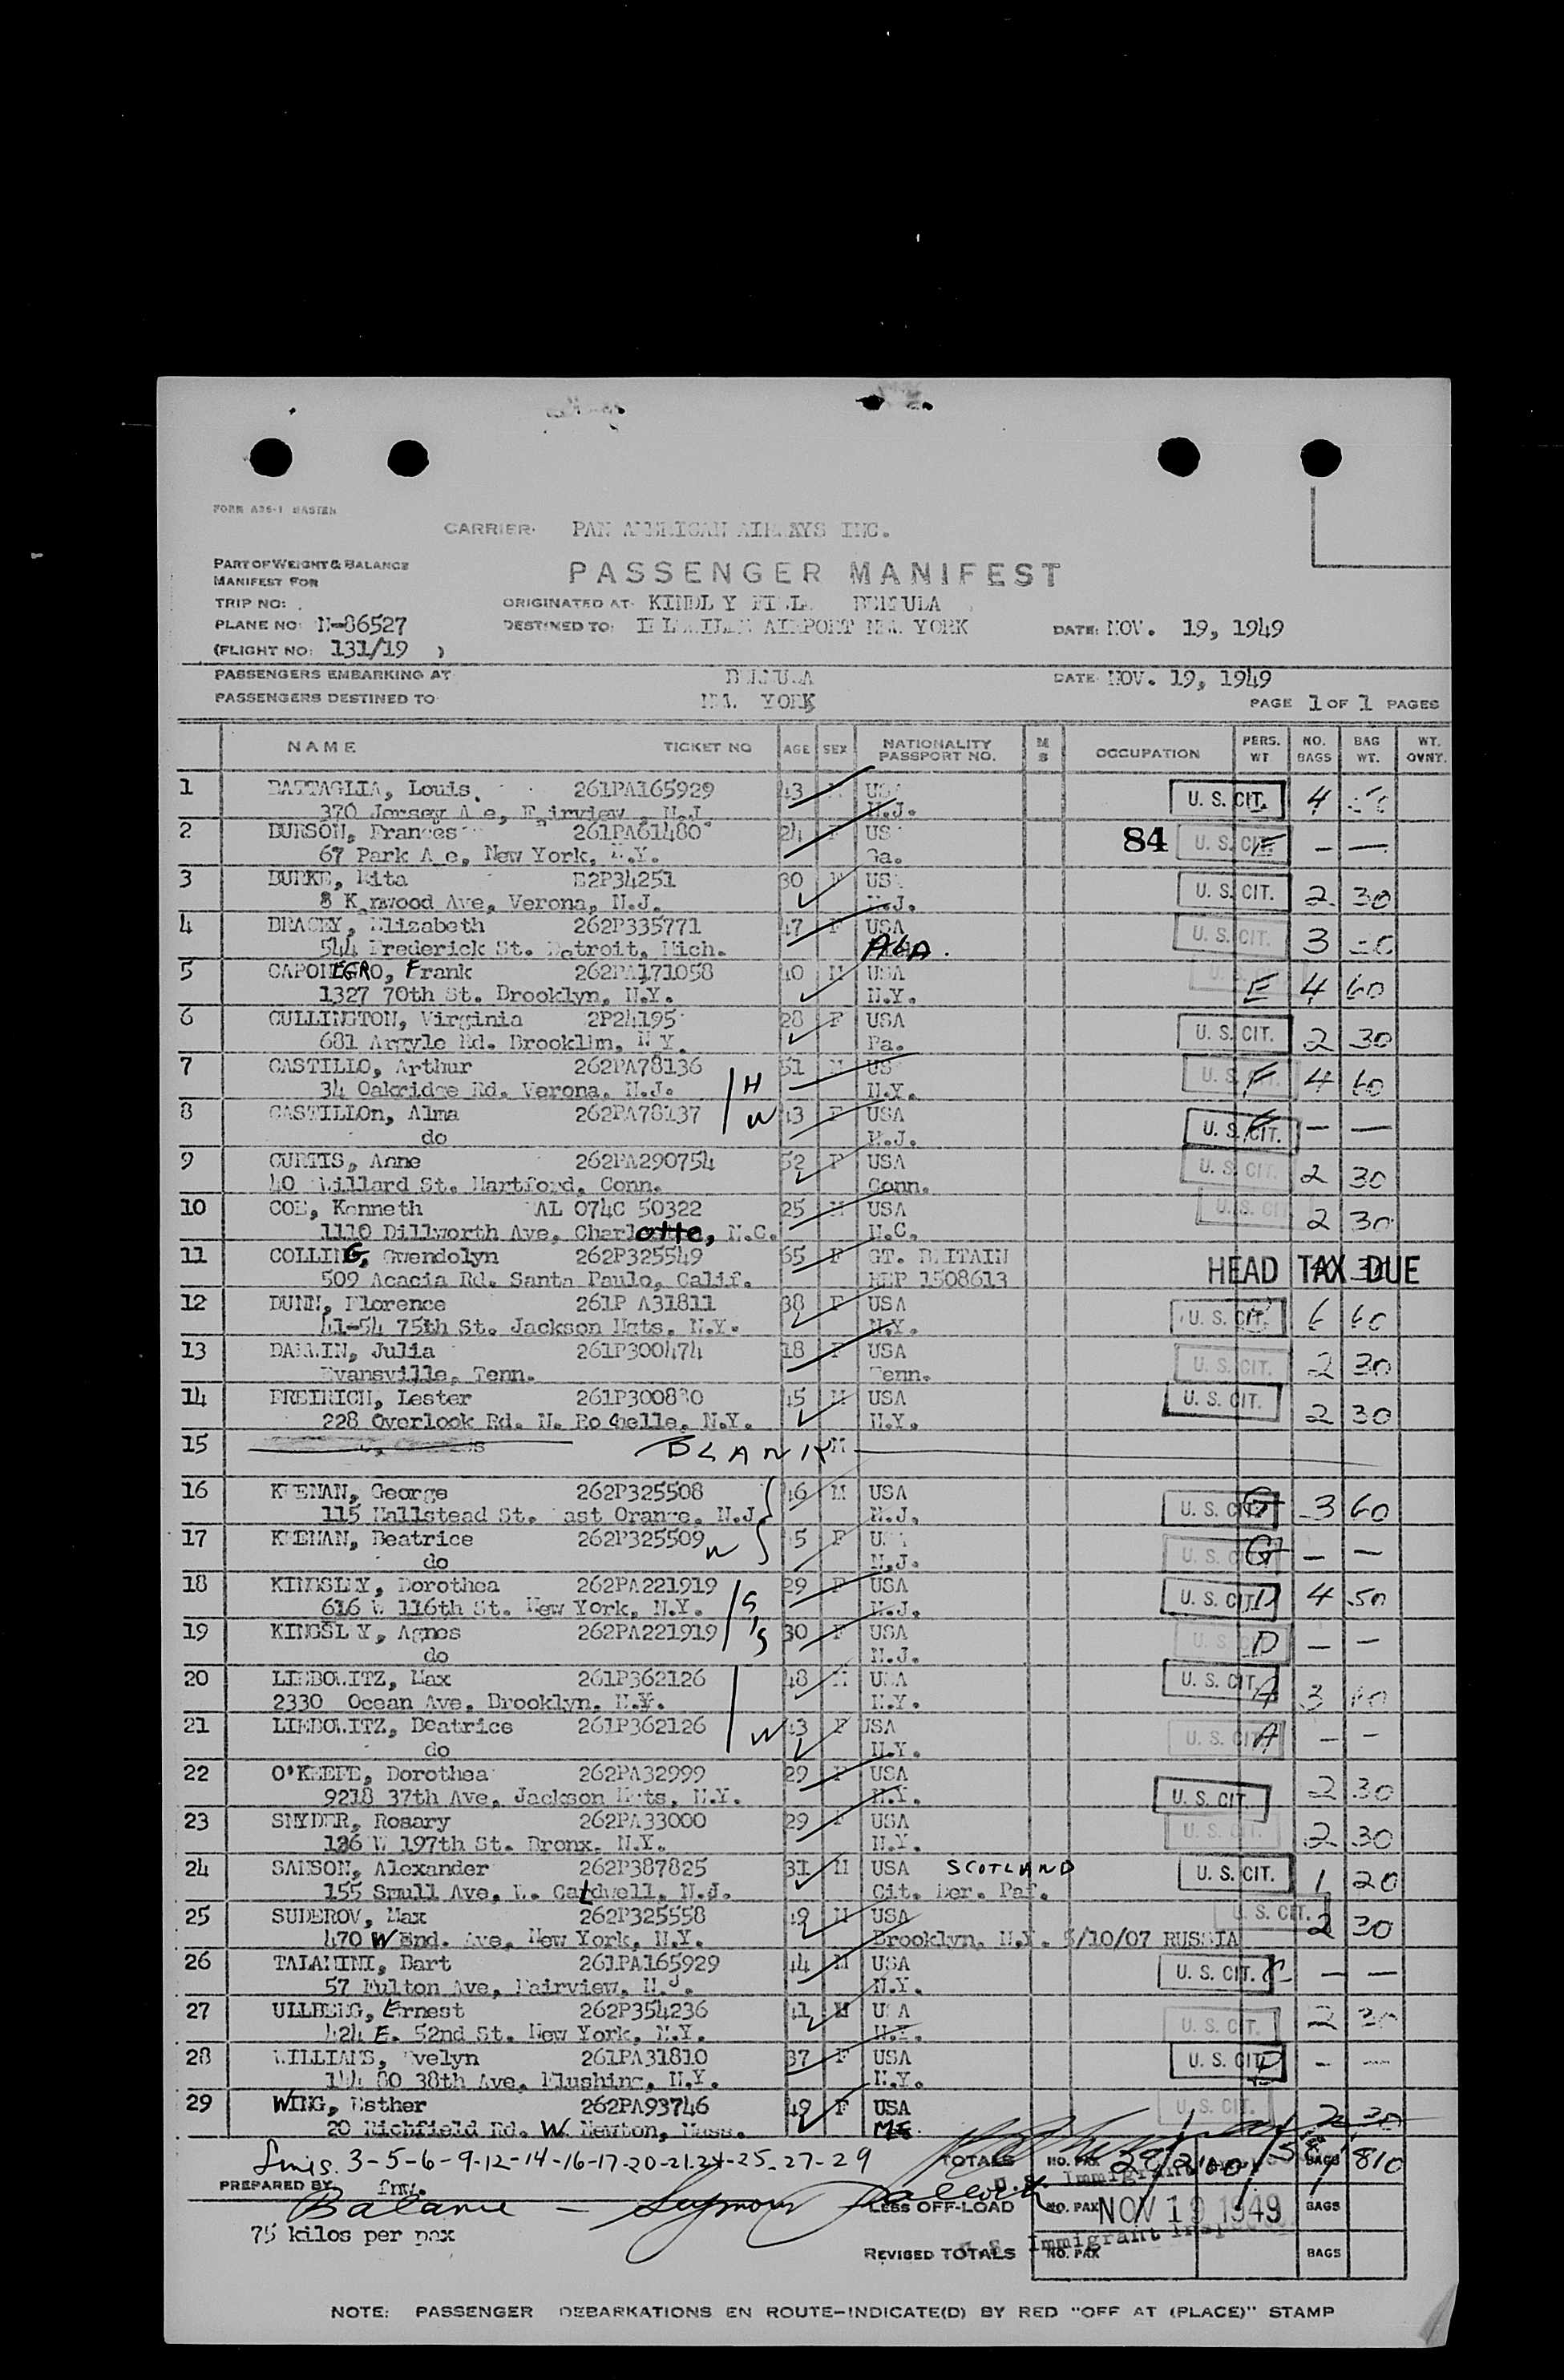 FORM ADS-1 MASTER
CARRIER: PAN AMERICAN AIRWAYS INC.
PART OF WEIGHT & BALANCE
MANIFEST FOR
PASSENGER MANIFEST
TRIP NO:
ORIGINATED AT: KINDL Y BERMUDA
PLANE NO: N-86527
DESTINED TO: AIRPORT NEW YORK
DATE: NOV. 19, 1949
(FLIGHT NO: 131/19 )
PASSENGERS EMBARKING AT BERMUDA
DATE NOV. 19, 1949
PASSENGERS DESTINED TO NEW YORK
PAGE 1 OF 1 PAGES
NAME TICKET NO AGE SEX NATIONALITY PASSPORT NO. M S OCCUPATION PERS. WT NO. BAGS BAG WT. WT. OVNT.
1 BATTAGLIA, Louis. 261PA165929 43 U. S. CIT. 4
370 Jersey A e, Fairview, N.J. N.J.
2 DURSON, Frances 261PA61480 24 F US 84 U. S. CIT. — —
67 Park A e, New York, N.Y. Ga.
3 BURKE, Rita E2P34251 30 F US U. S. CIT. 2 30
8 K nwood Ave, Verona, N.J. N.J.
4 BRACEY, Elizabeth 262P335771 47 F USA U. S. CIT. 3
544 Frederick St. Detroit, Mich. ALA.
5 CAPONEGRO, Frank 262PA171058 40 M USA E 4 60
1327 70th St. Brooklyn, N.Y. N.Y.
6 CULLINGTON, Virginia 2P24195 28 F USA U. S. CIT. 2 30
681 Argyle Rd. Brooklin, N.Y. Pa.
7 CASTILLO, Arthur 262PA78136 H 51 M US U. S. CIT. F 4 60
34 Oakridge Rd. Verona, N.J. N.Y.
8 CASTILLOn, Alma 262PA78137 W 43 F USA U. S. CIT. F — —
do N.J.
9 CURTIS, Anne 262PA290754 52 F USA U. S. CIT. 2 30
40 Willard St. Hartford, Conn. Conn.
10 COE, Kenneth AL 074C 50322 25 M USA U. S. CIT. 2 30
1110 Dillworth Ave, Charlotte, N.C. N.C.
11 COLLING, Gwendolyn 262P325549 65 F GT. BRITAIN HEAD TAX DUE
509 Acacia Rd. Santa Paulo, Calif. 1508613
12 DUNN, Florence 261P A31811 38 F USA U. S. CIT. 6 60
41-54 75th St. Jackson Hgts. N.Y. N.Y.
13 Julia 261P300474 18 F USA U. S. CIT. 2 30
Evansville, Tenn. Tenn.
14 FREIRICH, Lester 261P300830 45 M USA U. S. CIT. 2 30
228 Overlook Rd. N. Ro chelle, N.Y. N.Y.
15 BLANK M
16 KEENAN, George 262P325508 46 M USA U. S. CIT. G 3 60
115 Hallstead St. East Orange, N.J. N.J.
17 KEENAN, Beatrice 262P325509 W 45 F U. S. CIT. G — —
do N.J.
18 KINGSLEY, Dorothea 262PA221919 S 29 F USA U. S. CIT. D 4 50
616 W 116th St. New York, N.Y. N.J.
19 KINGSL Y, Agnes 262PA221919 S 30 F USA U. S. CIT. D — —
do N.J.
20 LIEBOWITZ, Max 261P362126 48 M USA U. S. CIT. A 3 60
2330 Ocean Ave. Brooklyn, N.Y. N.Y.
21 LIEBOWITZ, Beatrice 261P362126 W 43 F USA U. S. CIT. A — —
do N.Y.
22 O'KEEFE, Dorothea 262PA32999 29 F USA U. S. CIT. 2 30
9218 37th Ave, Jackson Hgts, N.Y. N.Y.
23 SNYDER, Rosary 262PA33000 29 F USA U. S. CIT. 2 30
186 W 197th St. Bronx, N.Y. N.Y.
24 SAMSON, Alexander 262P387825 31 M USA SCOTLAND U. S. CIT. 1 20
155 Smull Ave, W. Caldwell, N.J. Cit. Der. Pat.
25 SUDEROV, Max 262P325558 49 M USA U. S. CIT. 2 30
470 W End. Ave, New York, N.Y. Brooklyn, N.Y. 5/10/07 RUSSIA
26 TALAMINI, Bart 261PA165929 44 M USA U. S. CIT. — —
57 Fulton Ave, Fairview, N.J. N.Y.
27 ULLBERG, Ernest 262P354236 41 M U A U. S. CIT. 2 30
424 E. 52nd St. New York, N.Y. N.Y.
28 WILLIAMS, Evelyn 261PA31810 37 F USA U. S. CIT. — —
144 80 38th Ave, Flushing, N.Y. N.Y.
29 WING, Esther 262PA93746 49 F USA U. S. CIT. 2 30
20 Richfield Rd. W. Newton, Mass. ME.
3-5-6-9-12-14-16-17-20-21-24-25-27-29
TOTALS NO. PAX BAGS 810
PREPARED BY
Balance — Seymour Pallock
LESS OFF-LOAD NO. PAX NOV 19 1949 BAGS
75 kilos per pax
Immigrant Inspector
REVISED TOTALS NO. PAX BAGS
NOTE: PASSENGER DEBARKATIONS EN ROUTE—INDICATE(D) BY RED "OFF AT (PLACE)" STAMP